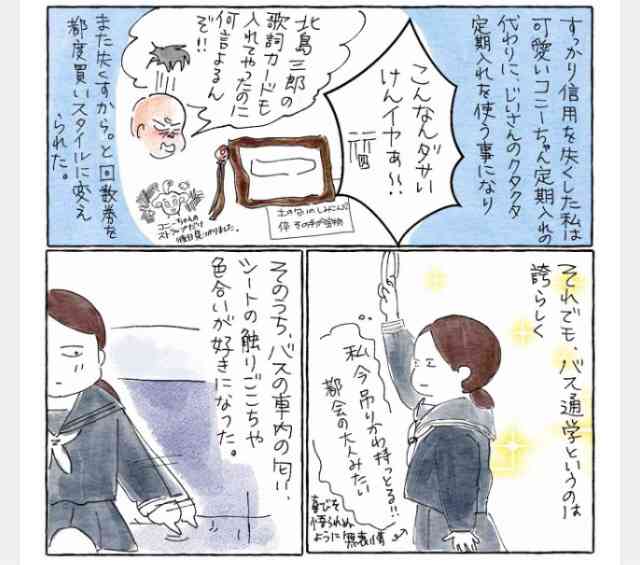 すっかり信用を失くした私は
可愛いコニーちゃん定期入れの
代わりに、じいさんのクタクタ
定期入れを使う事になり
こんなんダサい
けんイヤぁ〜〜。
北島三郎の
歌詞カードも
入れてやったのに
何言よるん
ぞ!!
コニーちゃんの
ストラップだけ
後日見つかりました。
また失くすから。と回数券を
都度買いスタイルに変え
られた。
それでも、バス通学というのは
誇らしく
私今吊りかわ持っとる!!
都会の大人みたい
喜びを
悟られぬ
ように無表情
そのうち、バスの車内の匂い、
シートの触りごこちや
色合いが好きになった。